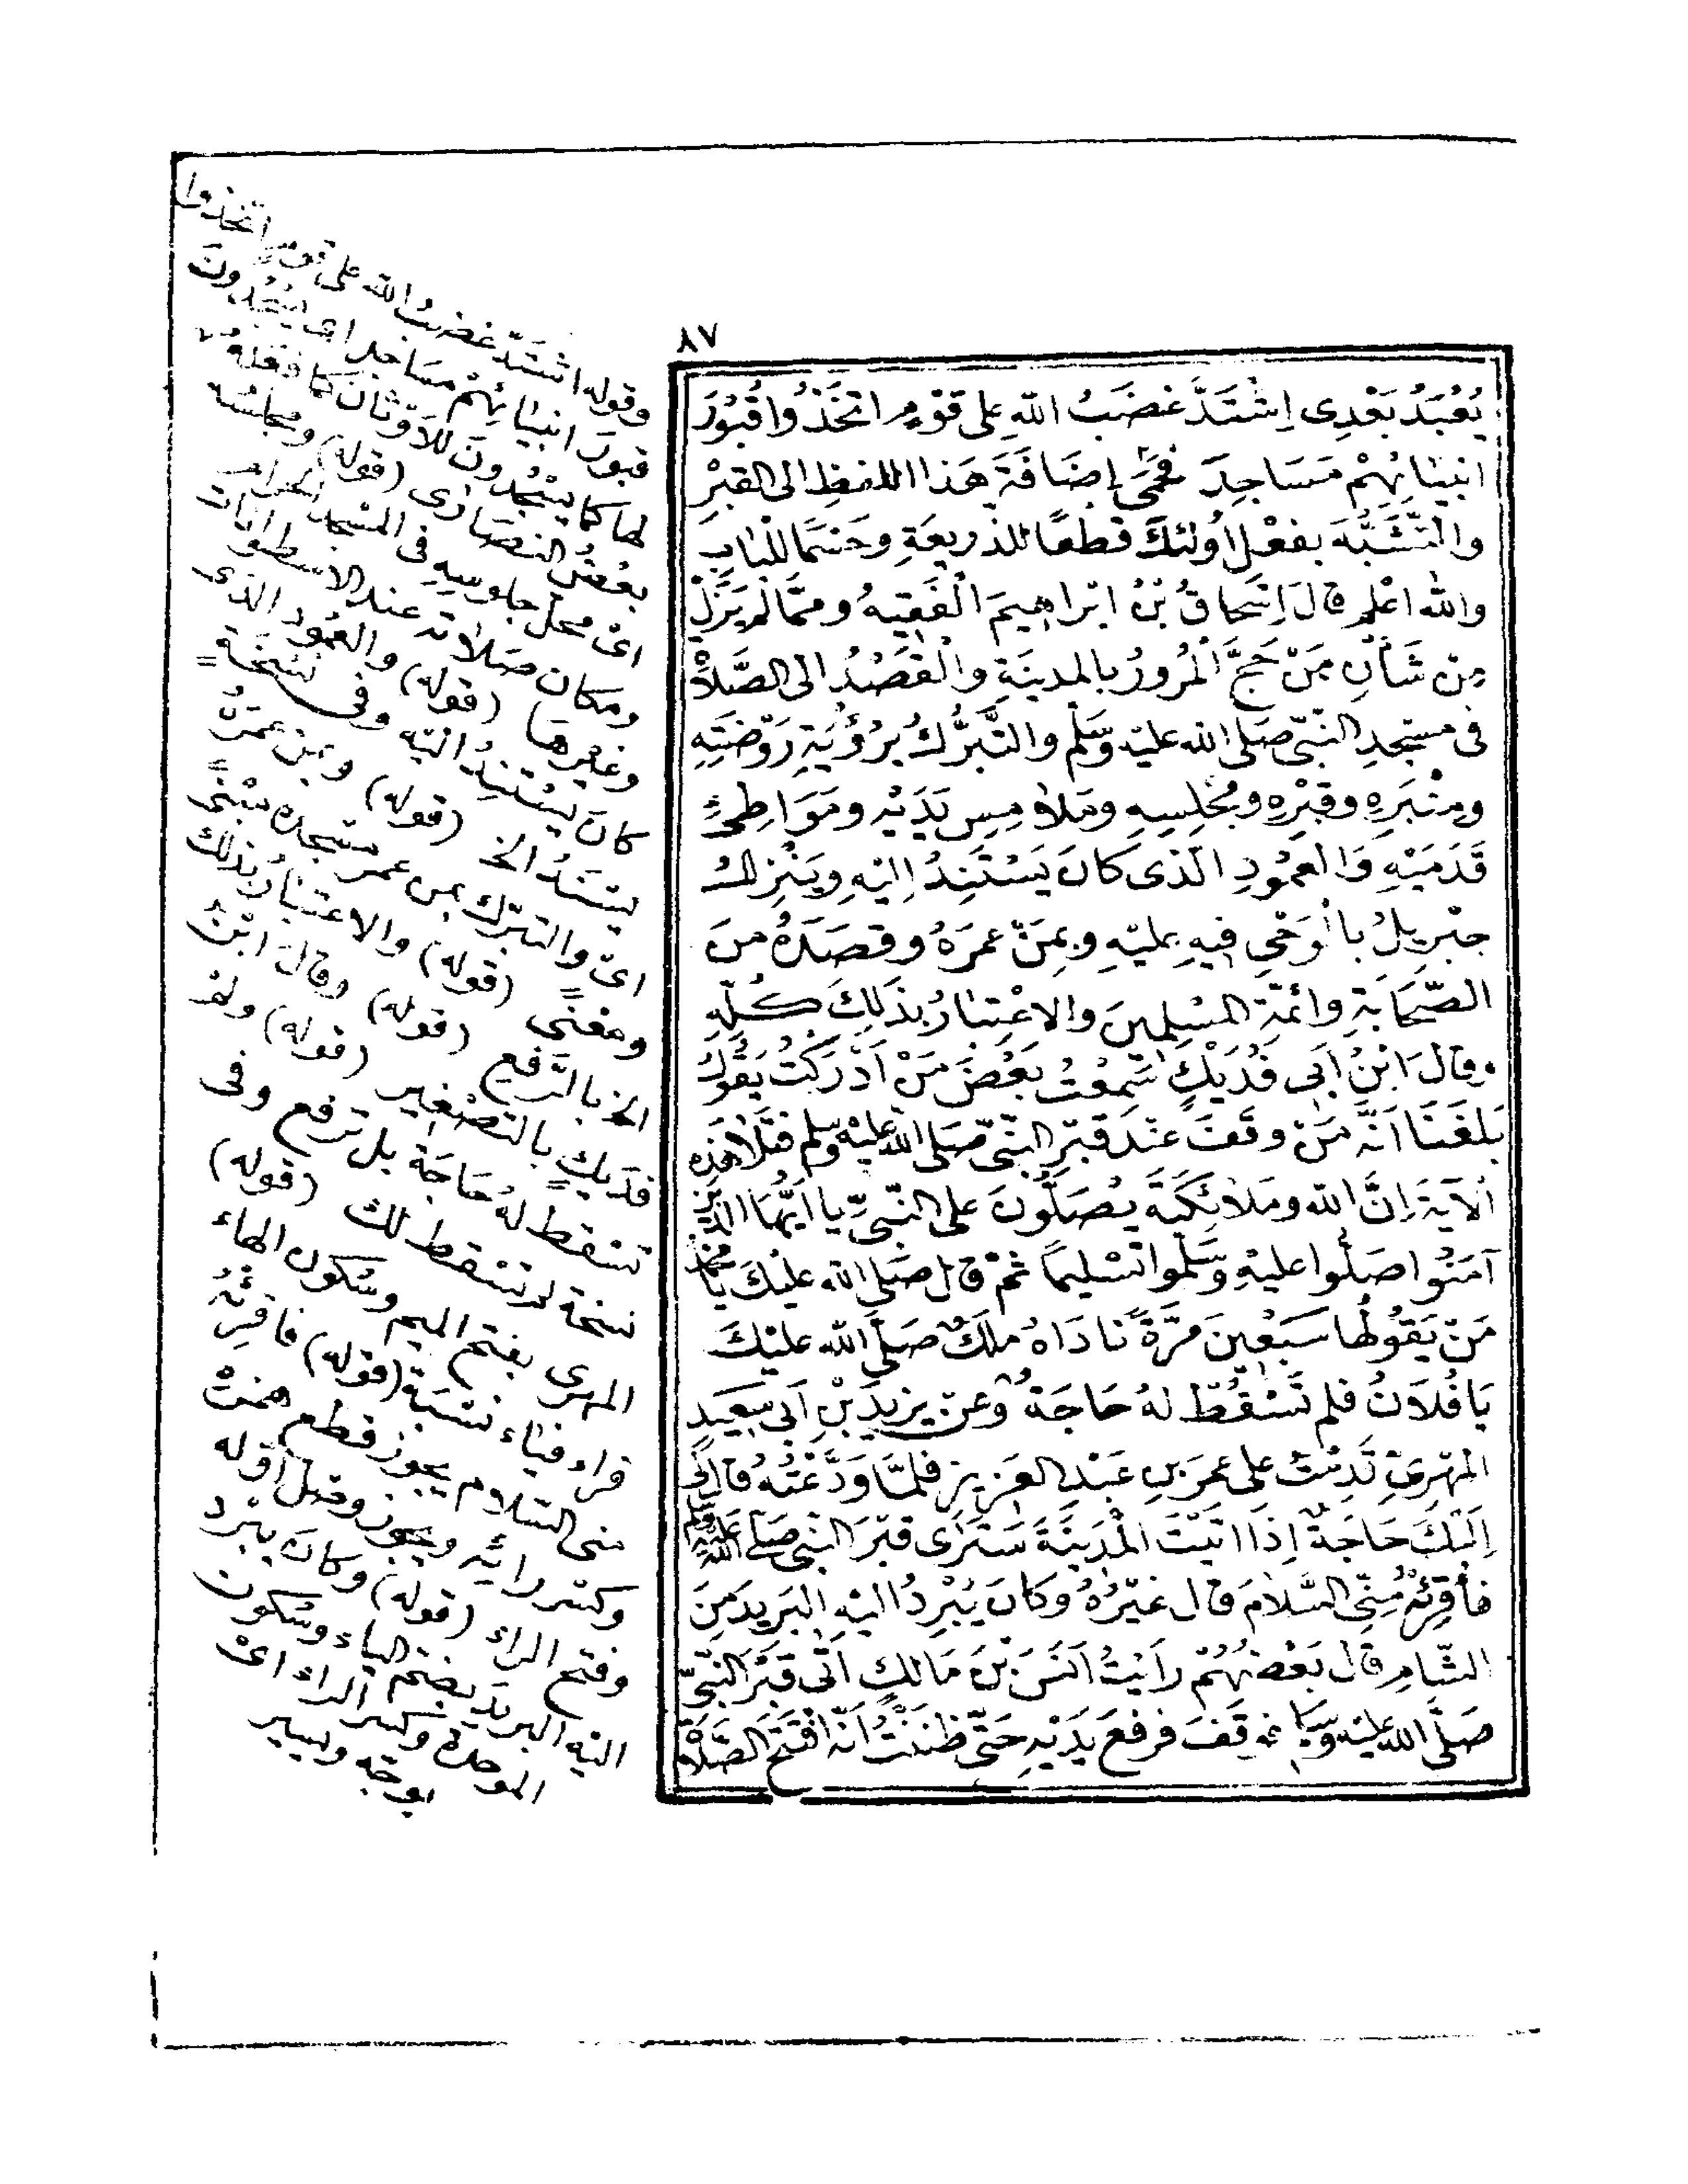 ٨٧
يُعْبَدُ بَعْدِى اِشْتَدَّ غَضَبُ اللهِ عَلى قَوْمٍ اتَّخَذُوا قُبُورَ
انبيَائِهِمْ مَسَاجِدَ فَحَمَى إضَافَةَ هَذا اللفظِ الى القبْرِ
والتَّشَبُّهَ بفعْلِ أُولئِكَ قطعًا للذريعَةِ وحَسْمًا للْبَابِ
والله اعْلم قالَ اِسْحَاقُ بْنُ ابْراهِيمَ الْفَقيهُ ومِمَّا لم يَزَلْ
مِنْ شَأنِ مَنْ حَجَّ الْمرورُ بالمدينَةِ والْقَصْدُ الى الصَّلاةِ
فى مسْجِدِ النَّبىّ صَلى الله عليْه وسَلّم والتَّبَرُّكُ برُؤْيَةِ رَوْضَتِهِ
ومِنْبَرِهِ وقَبْرِهِ ومَجْلِسِهِ ومَلامِسِ يَدَيْهِ ومَوَاطِئِ
قَدَمَيْهِ وَالْعَمُودِ الّذى كانَ يَسْتَنِدُ اِليْهِ ويَنْزِلُ
جبْرِيلُ بالْوَحْىِ فيهِ عليْهِ وبِمَنْ عمرَهُ وقصَدَهُ منَ
الصَّحَابَةِ وائمَّةِ المسْلِمينَ والاعْتِبَارُ بذَلِكَ كُلِّهِ
وقالَ ابْنُ اَبى فُدَيْكٍ سَمِعْتُ بَعْضَ مَنْ اَدْرَكتُ يَقُولُ
بَلغَنَا اَنَّهُ مَنْ وقَفَ عنْدَ قبْرِ النَّبىّ صَلى الله عليْه وسلم فتَلا هَذِهِ
الآيَةَ اِنَّ الله ومَلائِكَتَهُ يُصَلُّونَ على النَّبىِّ يا اَيُّهَا الَّذِينَ
آمَنُوا صَلُّوا عليْهِ وسَلّموا تسْليمًا ثمّ قال صَلى الله عليْكَ يَا مُحَمَّد
مَنْ يَقُولُها سَبْعِينَ مَرَّةً نَادَاهُ مَلَكٌ صَلَّى الله عليْكَ
يَا فُلَانُ فلم تَسْقُطْ لهُ حَاجَةٌ وعنْ يزِيدَ بْنِ اَبى سَعِيدٍ
المَهْرِىّ قَدِمْتُ على عمرَ بنِ عَبْدِ العَزيزِ فلمَّا وَدَّعْتُهُ قالَ لى
اِلَيْكَ حَاجَةٌ اِذَا اتَيْتَ الْمَدِينَةَ سَتَرَى قبْرَ النَّبى صَلى الله عليه وسلم
فأقْرِئْهُ مِنِّى السَّلامَ قال غيْرُهُ وَكانَ يُبْرِدُ اليْهِ البَرِيدَ مِنَ
الشّامِ قال بَعْضُهُمْ رأيْتُ اَنَسَ بْنَ مَالِكٍ اَتى قَبْرَ النَّبىّ
صَلَّى الله عليْه وسلم فوَقَفَ فرفعَ يَدَيْهِ حَتّى ظنَنْتُ اَنّهُ افْتَتَحَ الصَّلاةَ
وقوله اشتَدّ غضبُ الله على قوم اتخذوا
قبورَ انبيَائِهمْ مسَاجدَ اى يسْجُدونَ
لها كما يسْجُدونَ للاَوْثانِ كما فعَلهُ
بعْضُ النصَارى (قوله) ومجلسه
اىْ محلّ جلوسِهِ فى المسْجد الحرام
ومكانِ صَلاتِه عندَ الاسطوانات
وغيرها (قوله) والعَمُود الذى
كان يسْتندُ اليْه وفى نسْخة
يستندُ الخ (قوله) وبمن عمرَهُ
اىْ والتبرّك بمن عمر مسجده
ومعْنى (قوله) والاعتبارُ بذلك
الخ بالرّفع (قوله) وقال ابْنُ
فدَيكٍ بالتصْغير (قوله) ولم
تسْقط لهُ حَاجَة بل ترفع وفى
نسْخة لم تسْقط لك (قوله)
المهرى بفتح الميم وسُكون الهاء
فراء فيَاء نسْبَة (قوله) فاقرِئْهُ
منى السّلام يجوز قطع همزتْ
وكسْر رائِه ويجوز وصْل اوّله
وفتح الراء (قوله) وكان يبْرد
اليْه البريدَ بضمّ الياء وسُكون
الموحدة وكسْر الراء اىْ
يوجّه ويسيّر